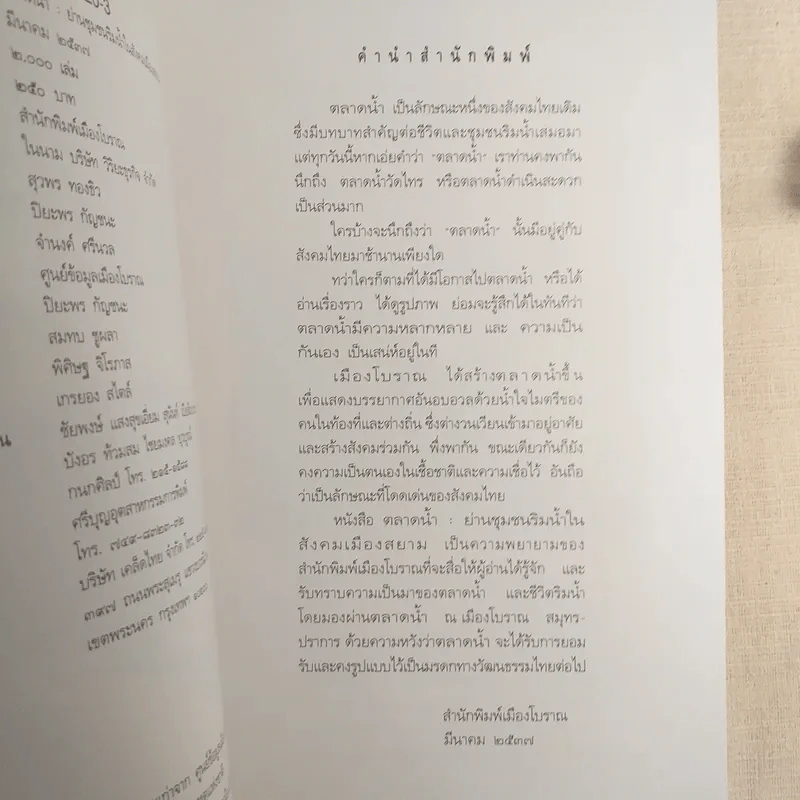 ตลาดน้ำ : ย่านชุมชนริมน้ำ
มีนาคม ๒๕๓๗
๒,๐๐๐ เล่ม
๒๕๐ บาท
สำนักพิมพ์เมืองโบราณ
ในนาม บริษัท วิริยะธุรกิจ จำกัด
สุวพร ทองธิว
ปิยะพร กัญชนะ
จำนงค์ ศรีนวล
ศูนย์ข้อมูลเมืองโบราณ
ปิยะพร กัญชนะ
สมทบ ชูผลา
พิศิษฐ จิโรภาส
เกรยอง สไตล์
ชัยพงษ์ แสงสุขเอี่ยม
บังอร ท้วมสม ไชยมงคล
กนกศิลป์ โทร. ๒๑๕-๑๕๘๘
ศรีบุญอุตสาหกรรมการพิมพ์
โทร. ๗๔๙-๘๓๒๓-๓๒
บริษัท เคล็ดไทย จำกัด โทร.
๓๙๗ ถนนพระสุเมรุ
เขตพระนคร กรุงเทพฯ
คำนำสำนักพิมพ์
ตลาดน้ำ เป็นลักษณะหนึ่งของสังคมไทยเดิม
ซึ่งมีบทบาทสำคัญต่อชีวิตและชุมชนริมน้ำเสมอมา
แต่ทุกวันนี้หากเอ่ยคำว่า "ตลาดน้ำ" เราท่านคงพากัน
นึกถึง ตลาดน้ำวัดไทร หรือตลาดน้ำดำเนินสะดวก
เป็นส่วนมาก
ใครบ้างจะนึกถึงว่า "ตลาดน้ำ" นั้นมีอยู่คู่กับ
สังคมไทยมาช้านานเพียงใด
ทว่าใครก็ตามที่ได้มีโอกาสไปตลาดน้ำ หรือได้
อ่านเรื่องราว ได้ดูรูปภาพ ย่อมจะรู้สึกได้ในทันทีว่า
ตลาดน้ำมีความหลากหลาย และ ความเป็น
กันเอง เป็นเสน่ห์อยู่ในที
เมืองโบราณ ได้สร้างตลาดน้ำขึ้น
เพื่อแสดงบรรยากาศอันอบอวลด้วยน้ำใจไมตรีของ
คนในท้องที่และต่างถิ่น ซึ่งต่างวนเวียนเข้ามาอยู่อาศัย
และสร้างสังคมร่วมกัน พึ่งพากัน ขณะเดียวกันก็ยัง
คงความเป็นตนเองในเชื้อชาติและความเชื่อไว้ อันถือ
ว่าเป็นลักษณะที่โดดเด่นของสังคมไทย
หนังสือ ตลาดน้ำ : ย่านชุมชนริมน้ำใน
สังคมเมืองสยาม เป็นความพยายามของ
สำนักพิมพ์เมืองโบราณที่จะสื่อให้ผู้อ่านได้รู้จัก และ
รับทราบความเป็นมาของตลาดน้ำ และชีวิตริมน้ำ
โดยมองผ่านตลาดน้ำ ณ เมืองโบราณ สมุทร-
ปราการ ด้วยความหวังว่าตลาดน้ำ จะได้รับการยอม
รับและคงรูปแบบไว้เป็นมรดกทางวัฒนธรรมไทยต่อไป
สำนักพิมพ์เมืองโบราณ
มีนาคม ๒๕๓๗